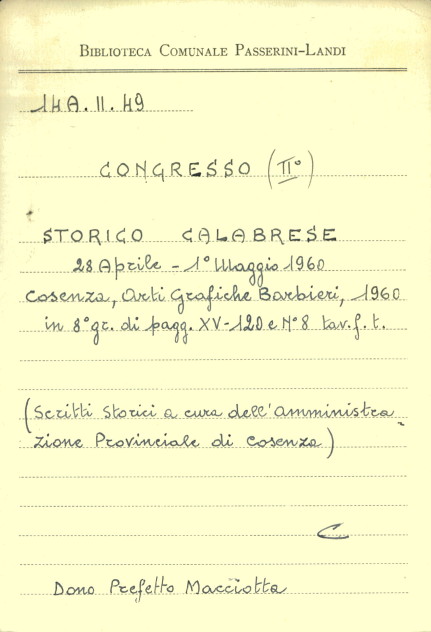 BIBLIOTECA COMUNALE PASSERINI-LANDI
14A.II.49
CONGRESSO (II°)
STORICO CALABRESE
28 Aprile - 1° Maggio 1960
Cosenza, Arti Grafiche Barbieri, 1960
in 8° gr. di pagg. XV-120 e N° 8 tav. f. t.
(Scritti Storici a cura dell'Amministra-
zione Provinciale di Cosenza)
C
Dono Prefetto Macciotta